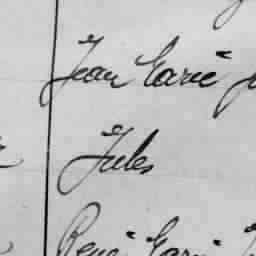 Jean Marie
Jules
René Marie